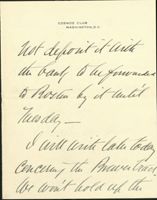 COSMOS CLUB
WASHINGTON, D.C.
not deposit it with
the bank to be forwarded
to Boston by it until
Tuesday —
I will write later today
concerning the
We won't hold up the